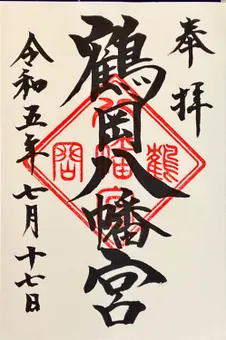 奉拝
鶴岡八幡宮
令和五年七月十七日